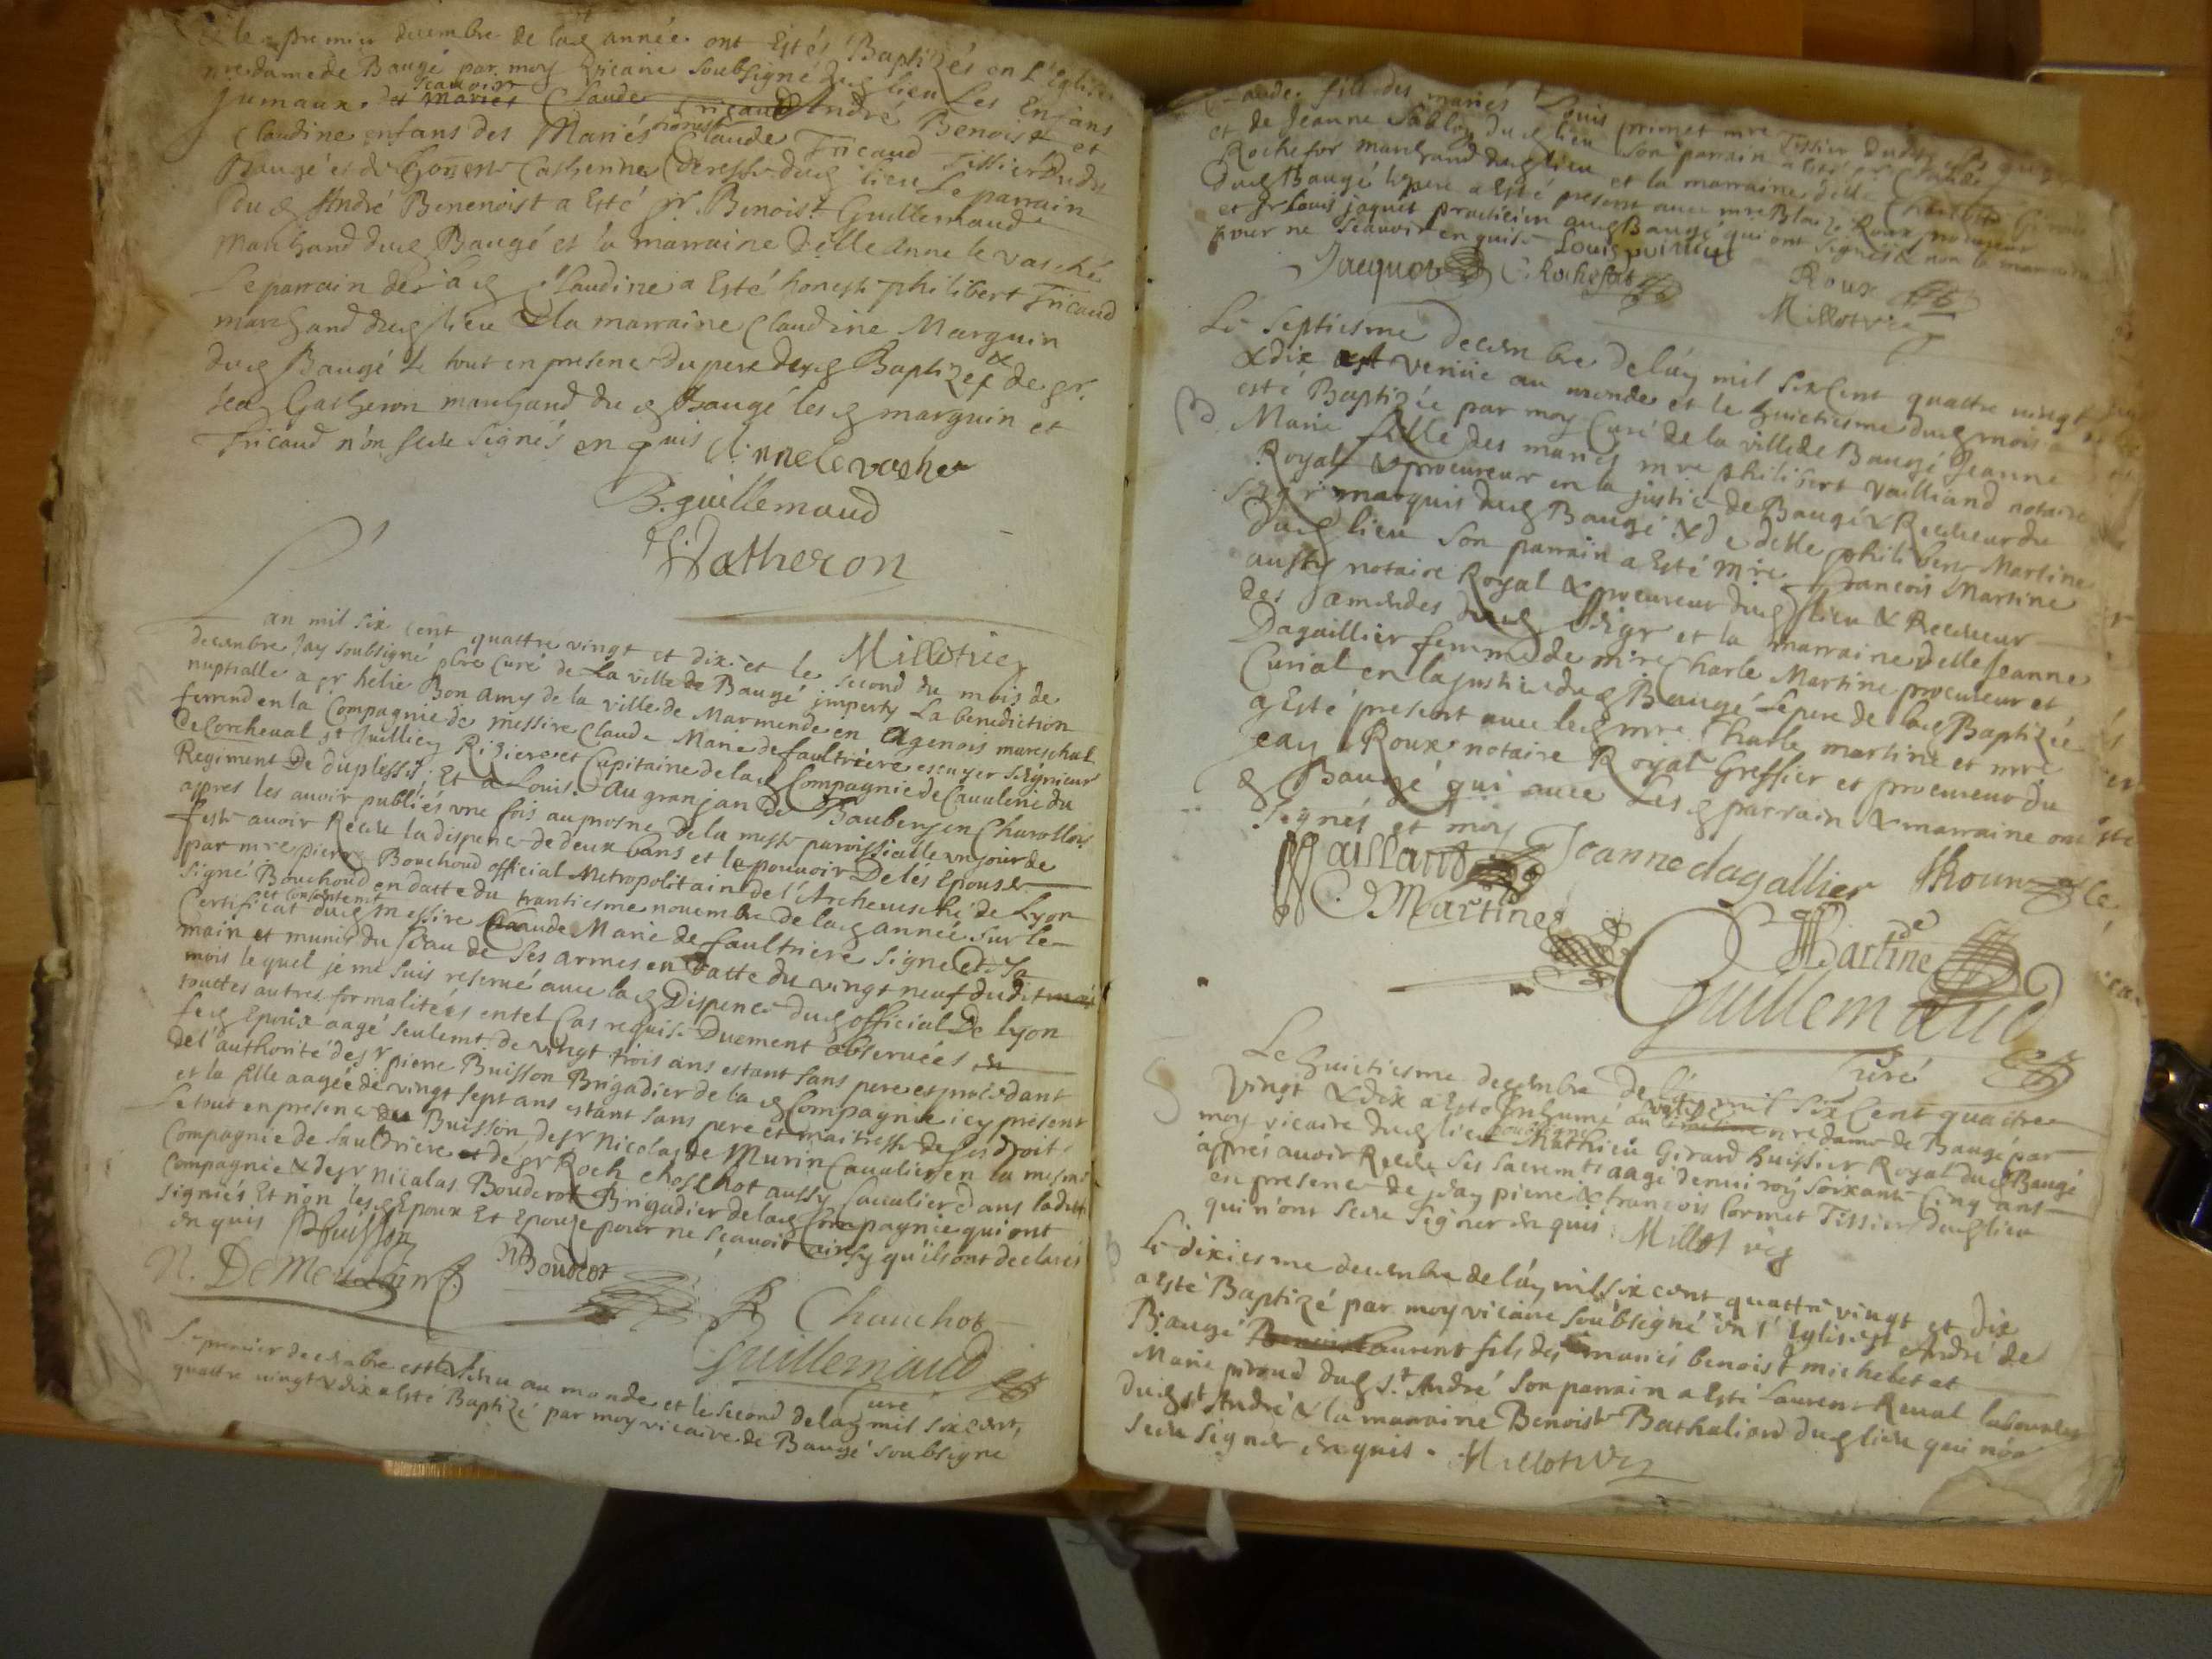 et le premier decembre de lad année ont Estés Baptizés en l'Eglise
nre dame de Baugé par moy vicaire soubsigné dud lieu Les Enfans
Jumaux scauoir Claude Tricaud André Benoist et
Claudine enfans des Mariés honest Claude Tricaud Tissier dudit
Baugé et de honeste Catherine dud lieu Le parrain
dud André Benenoist a Esté sr. Benoist Guillemaud
Marchand dud Baugé et la marraine delle Anne le vasché
Le parrain de lad Claudine a Esté honeste philibert Tricaud
marchand dud lieu & la marraine Claudine Marguin
dud Baugé Le tout en presence du pere desd Baptizés & de sr.
Jean Gatheron marchand dud Baugé lesd marguin et
Tricaud n'on sceu signés enquis Anne le vacher
B. guillemaud
Gatheron
Millot vic
L'an mil six cent quattre vingt et dix et le second du mois de
decembre Jay soubsigné pbre Curé de La ville de Baugé imparty La benediction
nuptialle a sr helie Bon amy de la ville de Marmende en Agenois mareschal
ferrand en la Compagnie de messire Claude Marie de faultriere escuyer seigneur
de Corcheual st Juillien Riziere et Capitaine de lad Compagnie de Cauulerie du
Regiment De duplessis; Et a Louise Au granjan de Baubery en Charollois
apres les auoir publiés vne fois au prosne de la messe paroissialle un jour de
feste auoir Receu la dispence de deux bans et le pouuoir De les Epouser
par mre pierre Bouchoud official Metropolitain de l'Archeuesché de Lyon
signé Bouchoud en datte du trantiesme nouembre de lad année sur le
Certificat et consentemt dud messire Claude Marie de faultriere signé de sa
main et munis du sceau de ses armes en datte du vingt neuf dudit mois
mois lequel je me suis reserué auec lad Dispence dud official De lyon
touttes autres formalitéés en tel Cas requise Duement obseruéés
led Epoux aagé seulemt. de vingt trois ans estant sans pere et procedant
de l'authorité de sr pierre Buisson Brigadier de lad Compagnie icy present
et la fille aagée de vingt sept ans estant sans pere et maitresse de ses droits
Le tout en presence du Buisson de sr Nicolas de Murin Caualier en la mesme
Compagnie de faultriere et de sr Roch choschot aussy Caualier dans ladite
Compagnie & de sr nicalas Bouderot Brigadier de lad Compagnie qui ont
signés Et non lesd Epoux Et Epouse pour ne scauoir ainsy qu'ils ont declarés
enquis Buisson
N. Boudrot
R Chauchot
Guillemaud
Curé
Le premier decembre est venu au monde et le second de lan mil six cent
quattre vingt & dix a esté Baptizé par moy vicaire de Baugé soubsigne
Claude fils des mariés Louis primet mre Tissier dudit
et de Jeanne Sablon dud lieu son parrain a esté sr Claude
Rochefor marchand dud lieu et la marraine delle
dud Baugé le pere a Esté present auec mre Blaize Roux procureur
et sr Louis jaquet praticien aud Baugé qui ont signés & non la marraine
pour ne scauoir enquise Louis primet
Jacquet C Rochefort Roux
Millot vic
Le septiesme decembre de lan mil six cent quattre vingt
& dix est venüe au monde et le huictiesme dud mois a
esté Baptizée par moy Curé de la ville de Baugé Jeanne
Marie fille des mariés mre philibert vailliand notaire
Royal & procureur en la justice de Baugé & Receueur du
seigr marquis dud Baugé & de delle philiberte Martine
dud lieu son parrain a Esté mre francois Martine
aussy notaire Royal & procureur dud lieu & Receueur
des amendes dud seigr et la marraine delle Jeanne
Dagaillier femme de mre Charle Martine procureur et
Curial en la justice dud Baugé Le pere de lad Baptizée
a Esté present auec led mre Charle martine et mre
Jean Roux notaire Royal Greffier et procureur du
d Baugé qui auec lesd parrain & marraine ont
signés et moy
Vaillant Jeanne dagallier JRoux
C Martine
Martine
Guillemaud
Curé
Le huictiesme decembre de lan mil six cent quattre
vingt & dix a esté Inhumé au nre dame de Baugé par
moy vicaire dud lieu soubsigné Mathieu Girard huissier Royal dud Baugé
appres auoir Receu ses sacremts aagé denuiron soixante Cinq ans
en presence de Jean pierre & francois Cormet Tissier dud lieu
qui n'ont sceu signer enquis. Millot vic
Le dixiesme decembre de lan mil six cent quattre vingt et dix
a Esté Baptizé par moy vicaire soubsigné en l'Eglise st André de
Baugé Laurent fils des mariés benoist michelet et
Marie piroud dud St. André son parrain a Esté Laurent Reual laboureur
dud st André & la marraine Benoiste Bathaliard dud lieu qui n'on
sceu signer enquis. Millot vic